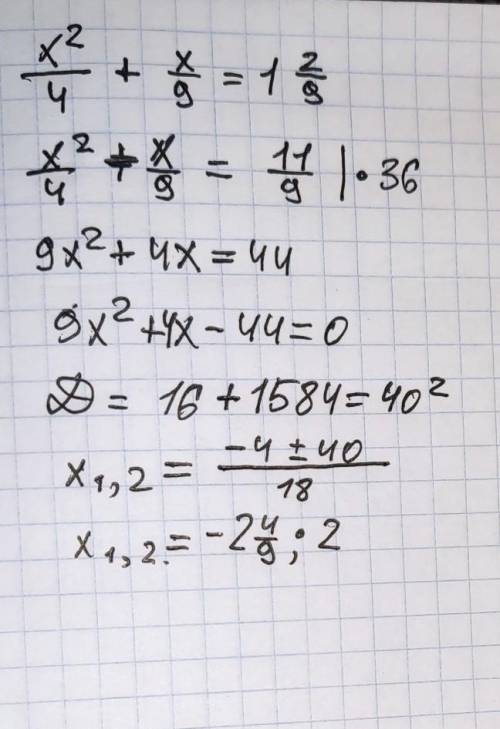 x²/4 + x/9 = 1 2/9
x²/4 + x/9 = 11/9 | • 36
9x² + 4x = 44
9x² + 4x - 44 = 0
D = 16 + 1584 = 40²
x₁,₂ = (-4 ± 40)/18
x₁,₂ = -2 4/9; 2